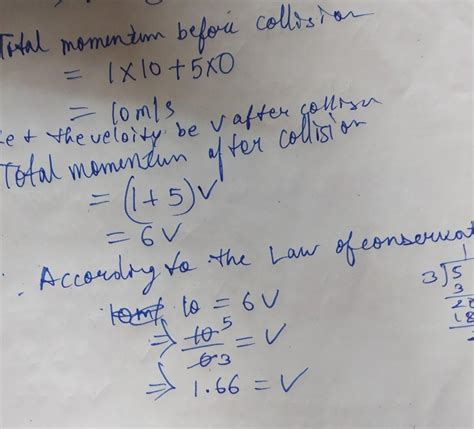 Total momentum before collision
= 1×10+5×0
= 10m/s
Let the veloity be v after collison
Total momentum after collision
= (1+5)v
= 6v
∴ According to the Law of conservat
10 = 6v
⇒ 10 5 / 6 3 = v
⇒ 1.66 = v
1
3)5
3
18